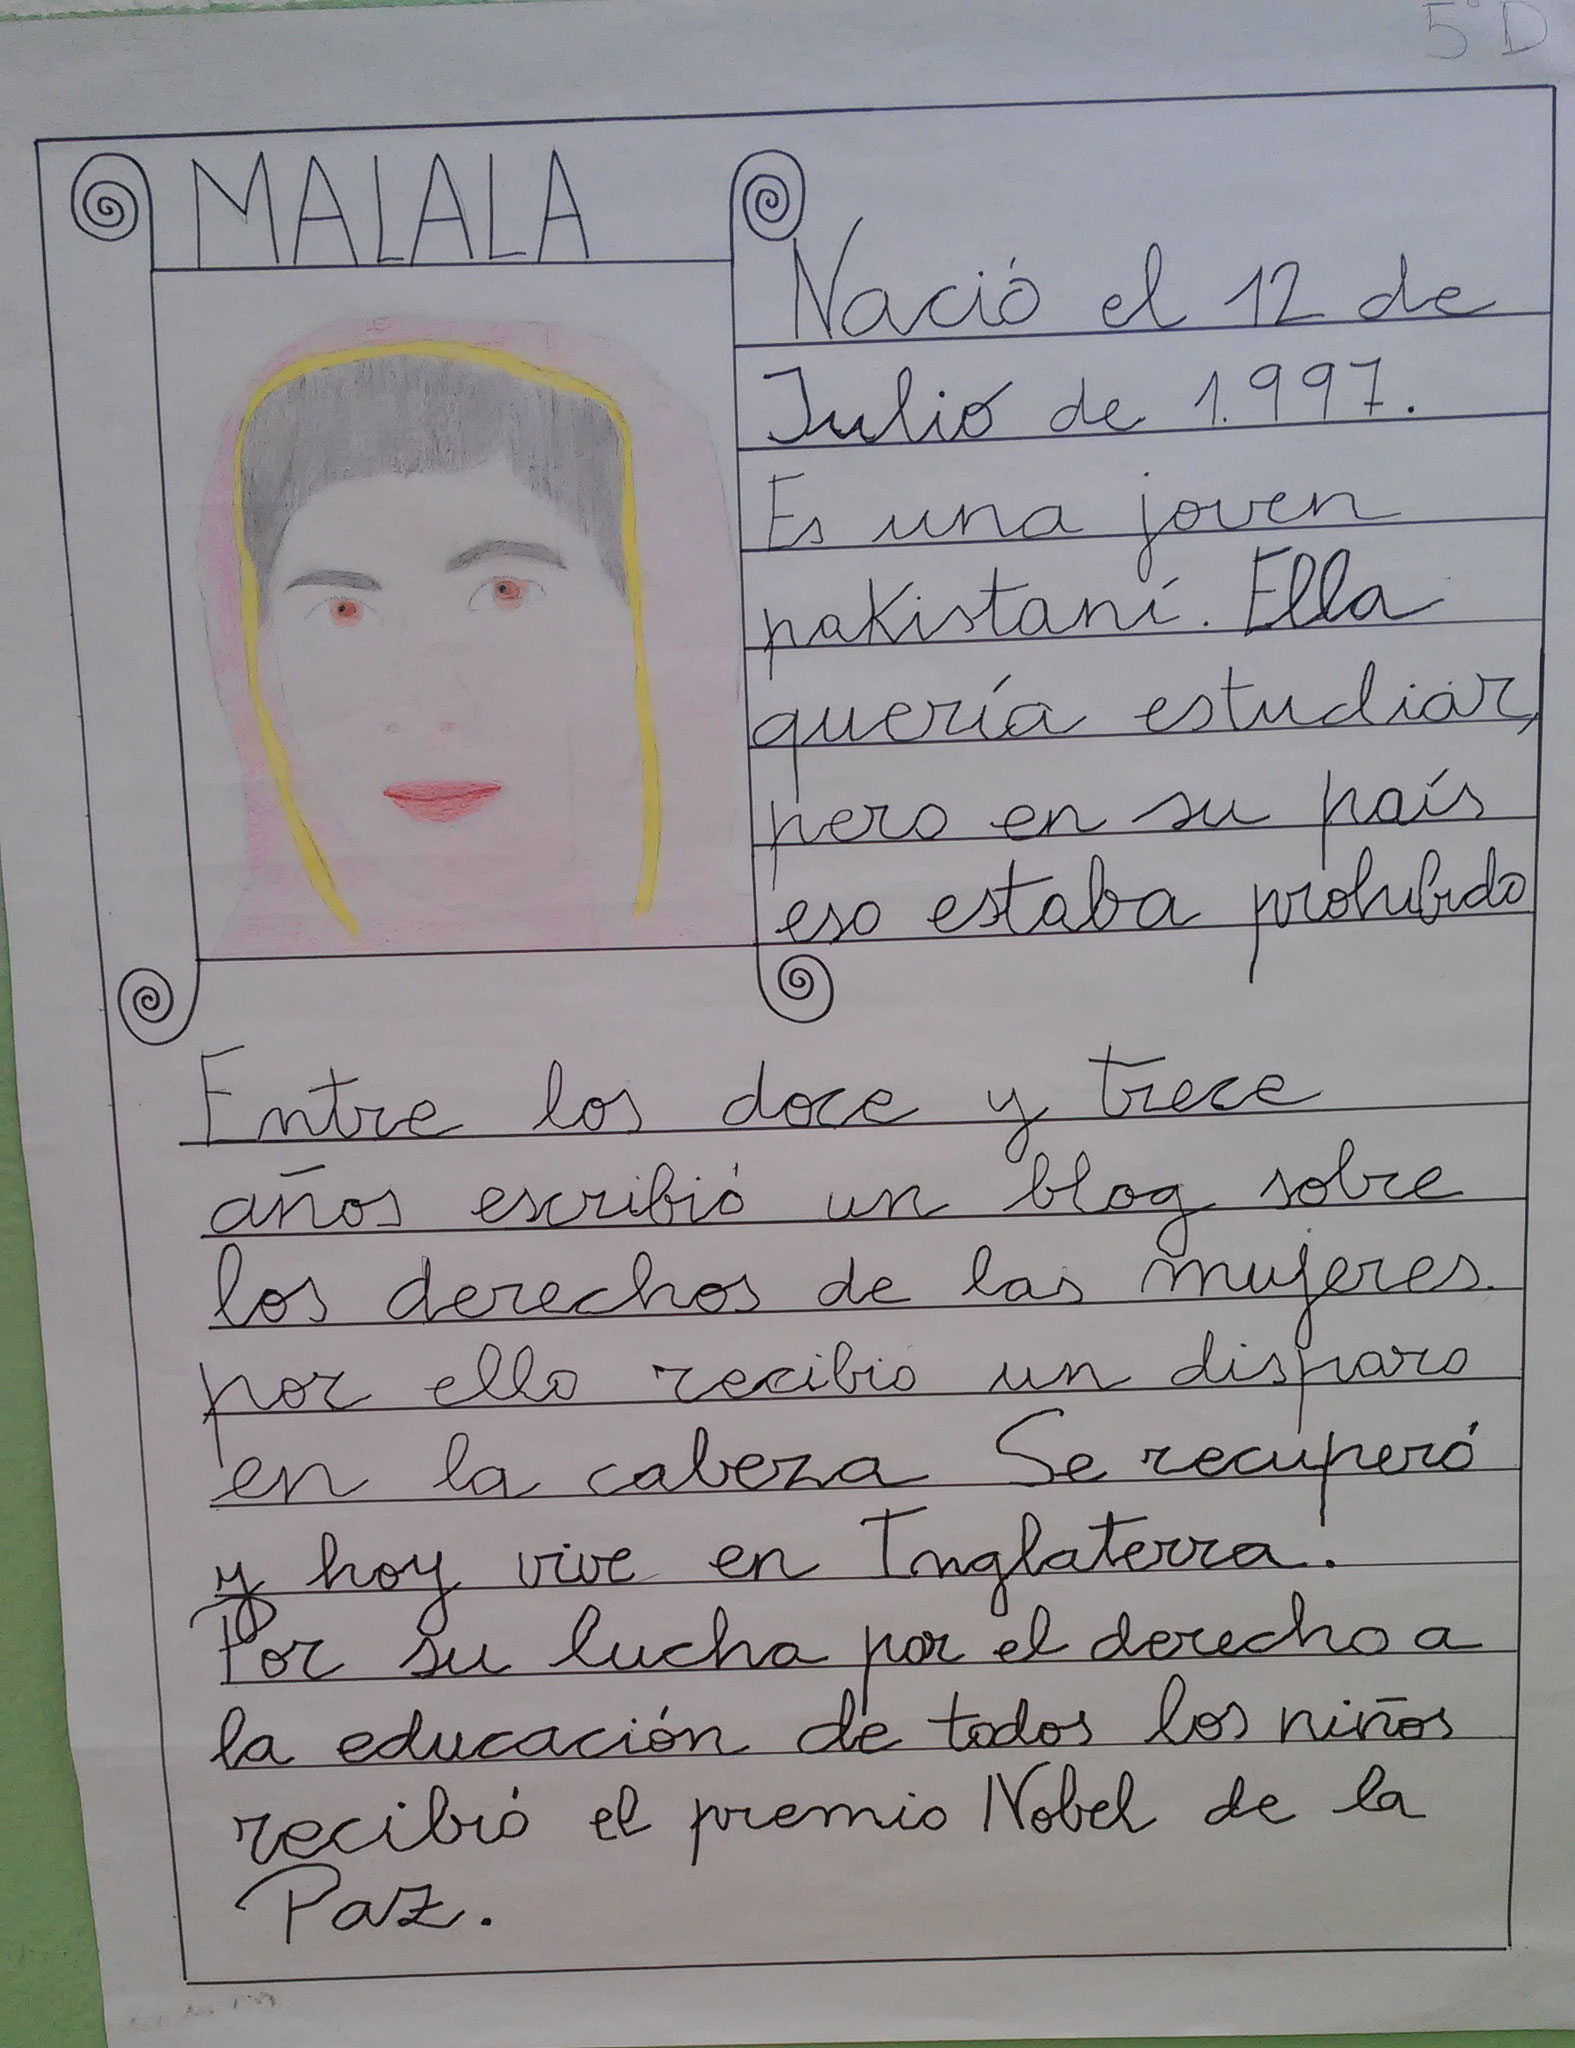 5º D
MALALA
Nació el 12 de
Julio de 1.997.
Es una joven
pakistaní. Ella
quería estudiar,
pero en su país
eso estaba prohibido
Entre los doce y trece
años escribió un blog sobre
los derechos de las mujeres.
por ello recibio un disparo
en la cabeza Se recuperó
y hoy vive en Inglaterra.
Por su lucha por el derecho a
la educación de todos los niños
recibió el premio Nobel de la
Paz.